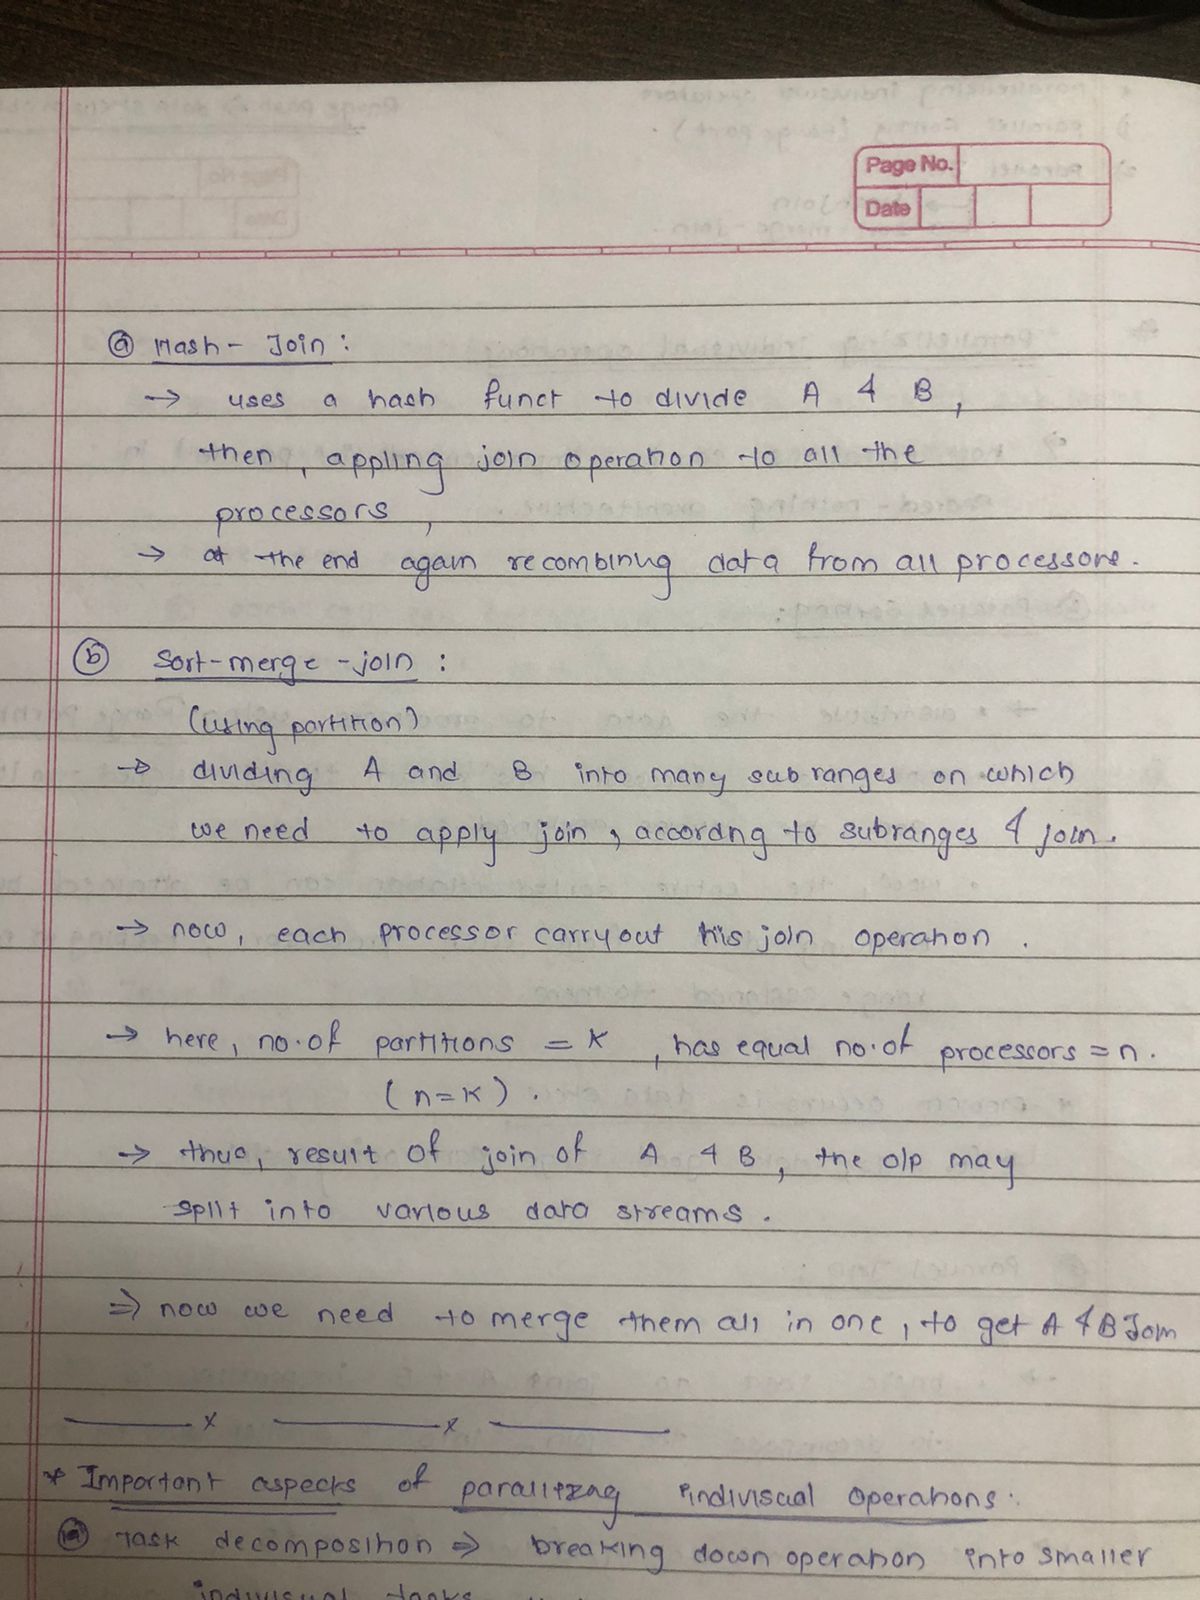 Page No.
Date
ⓐ Hash - Join :
→ uses a hash funct to divide A & B ,
then , appling join operation to all the
processors ,
→ at the end again recombining data from all processors .
ⓑ Sort-merge-join :
(using partition)
→ dividing A and B into many sub ranges on which
we need to apply join , accordng to subranges & join .
→ now , each processor carryout his join operation .
→ here , no. of partitions = K , has equal no. of processors = n .
( n = K ) .
→ thus , result of join of A & B , the o/p may
split into various data streams .
⇒ now we need to merge them all in one , to get A & B Join
x x
* Important aspects of operations .
ⓐ Task decomposition ⇒ breaking down operation into smaller
tasks